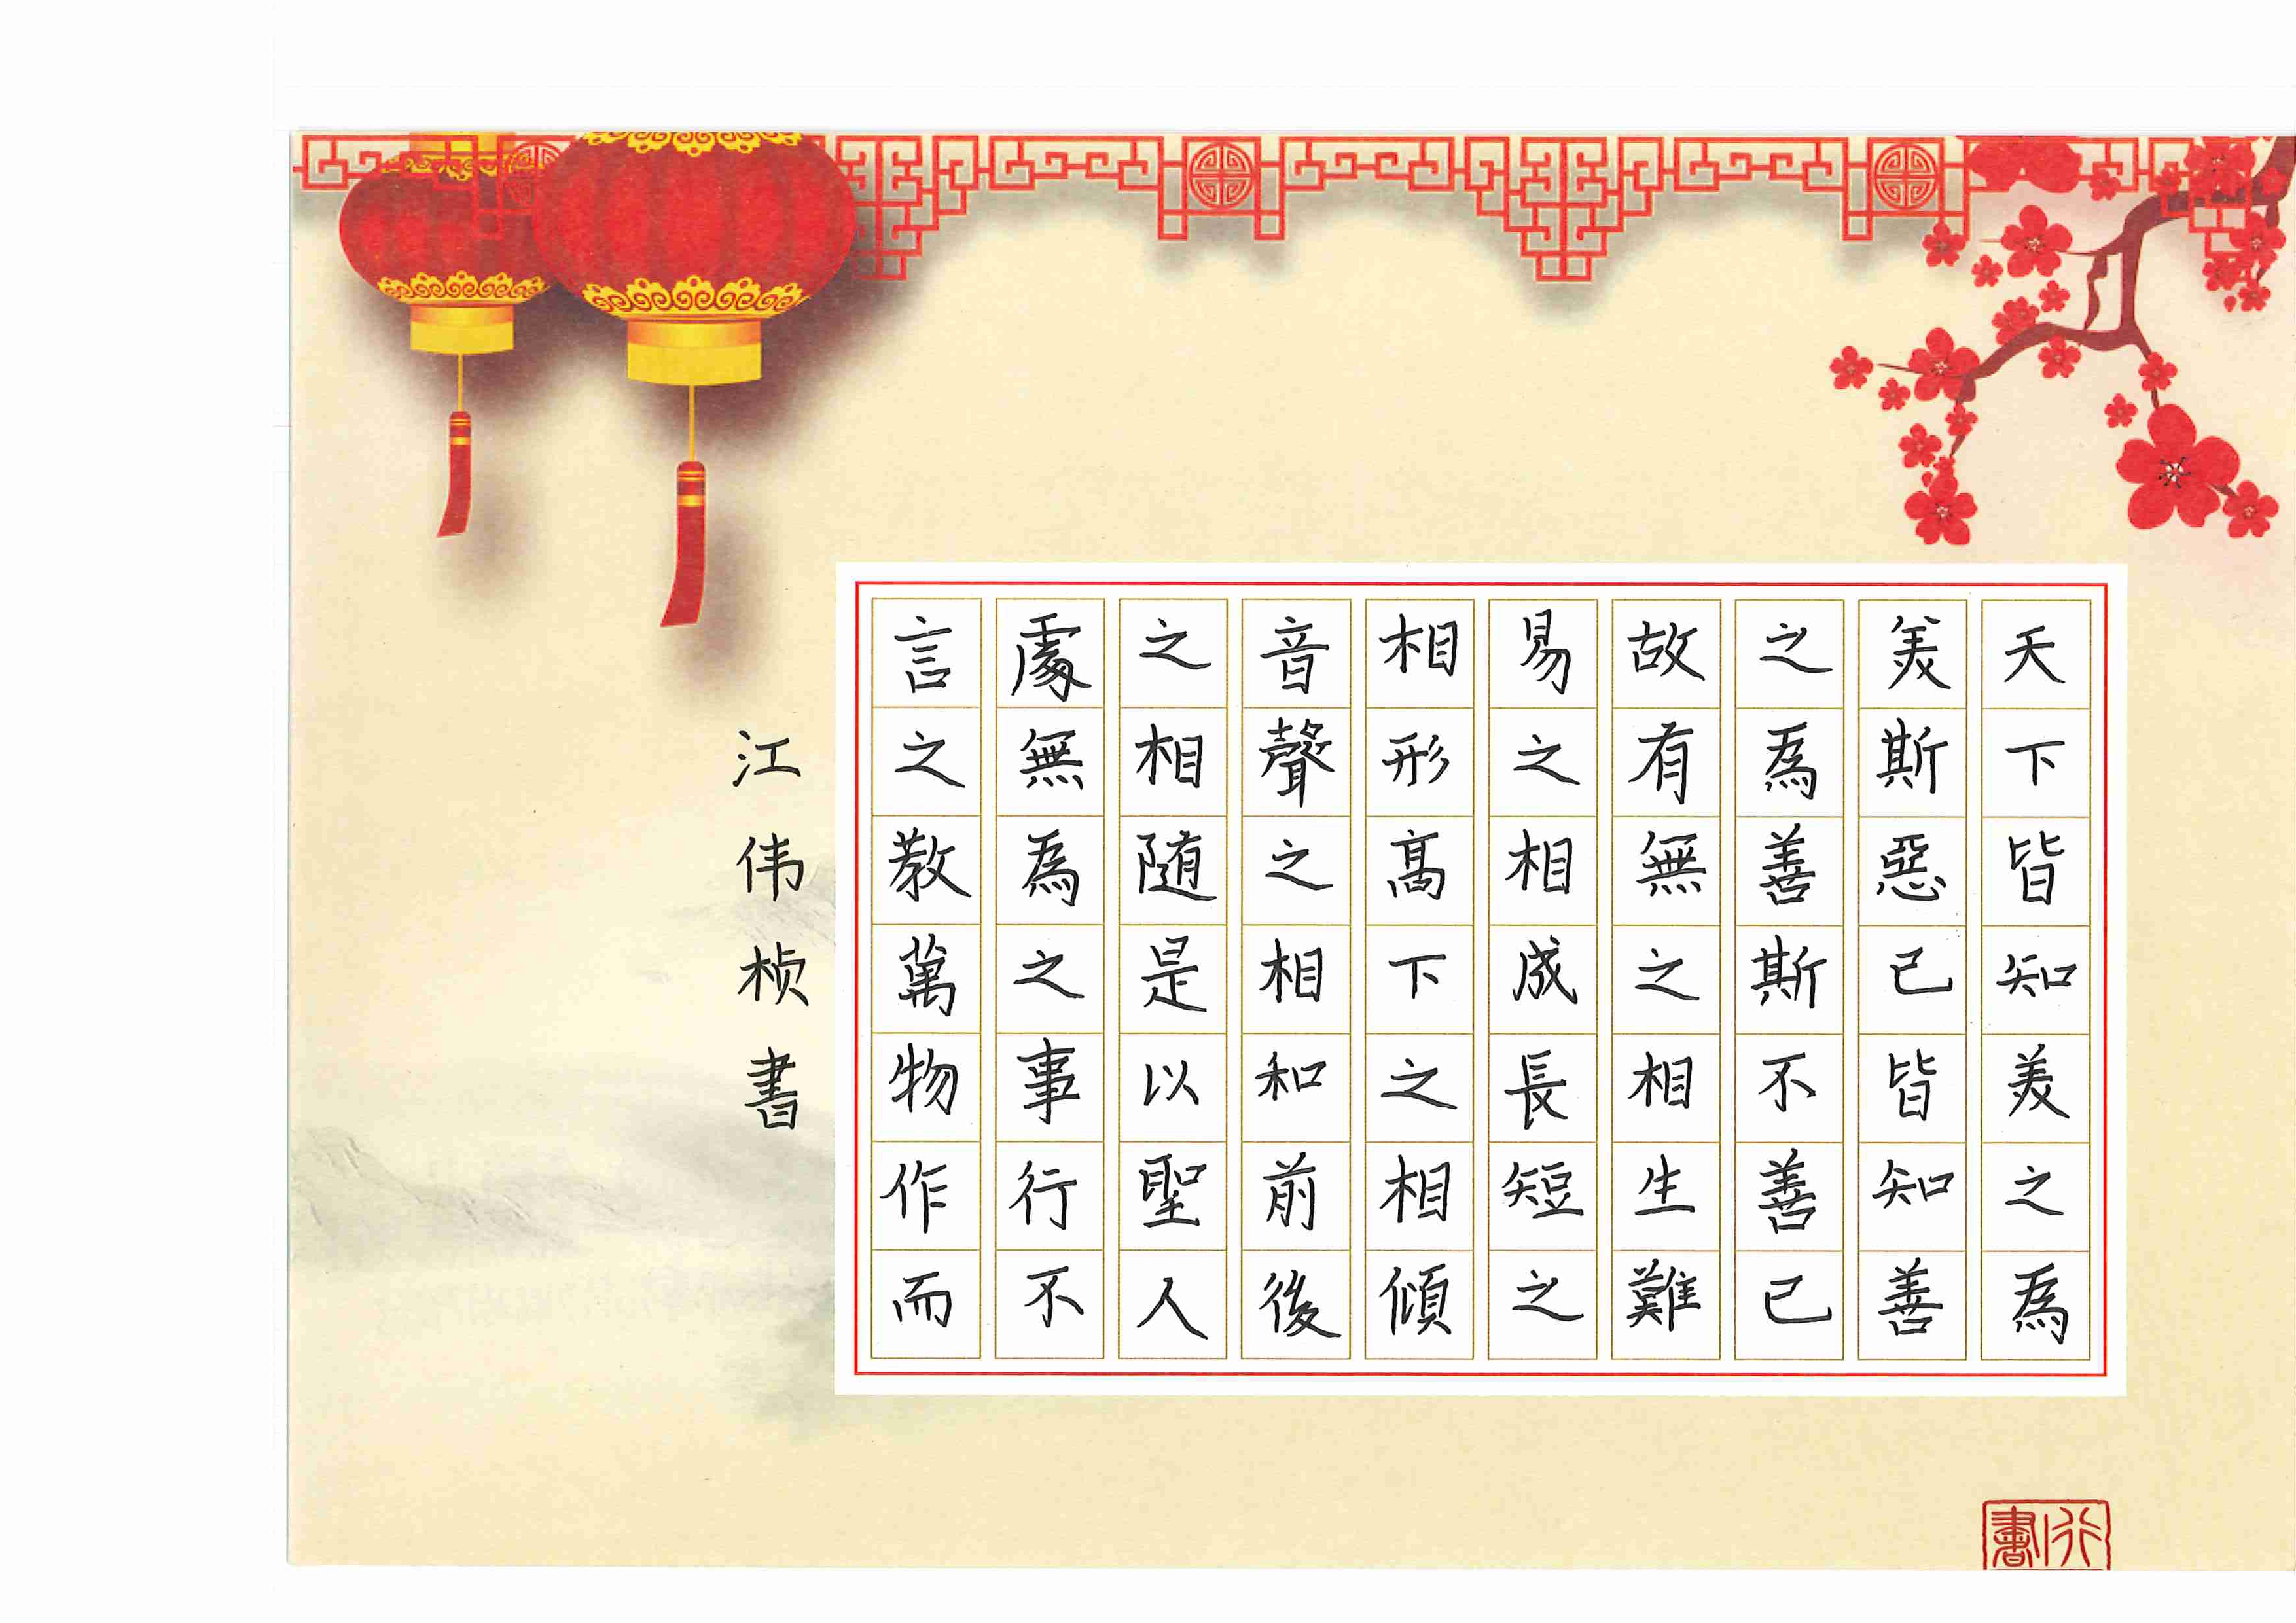 天下皆知美之為
美斯惡已皆知善
之為善斯不善已
故有無之相生難
易之相成長短之
相形高下之相傾
音聲之相和前後
之相随是以聖人
處無為之事行不
言之教萬物作而
江伟桢書